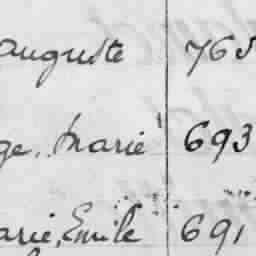 auguste 765
ge, Marie 693
arie, Emile 691